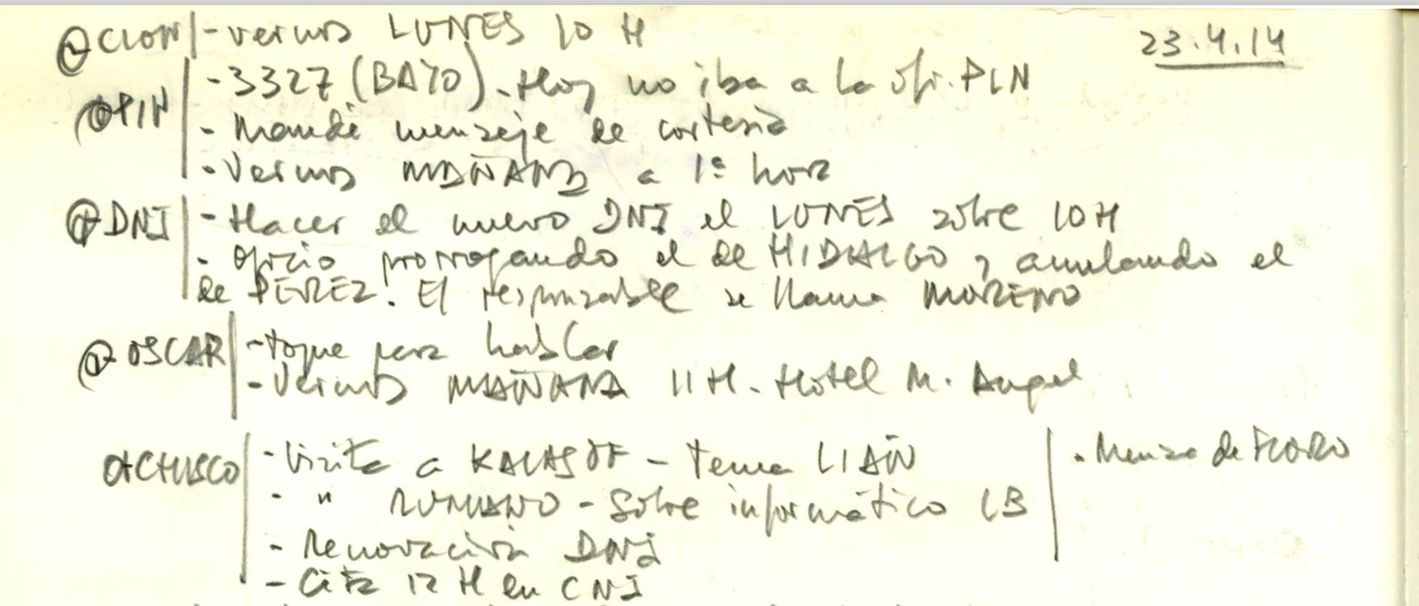 23.4.14
CLON - Vernos LUNES 10 H
PIN - 3327 (BAYO). Hoy no iba a la ofi. PLN
- Mandé mensaje de cortesía
- Vernos MAÑANA a 1ª hora
DNI - Hacer el nuevo DNI el LUNES sobre 10H
- Oficio prorrogando el de HIDALGO y anulando el
de PEREZ! El responsable se llama MORENO
OSCAR - toque para hablar
- Vernos MAÑANA 11 H. Hotel M. Angel
CHISCO - Visita a - Tema LIAÑ
- " RUMANO - Sobre informático LB
- Renovación DNI
- Cita 12 H en CNI